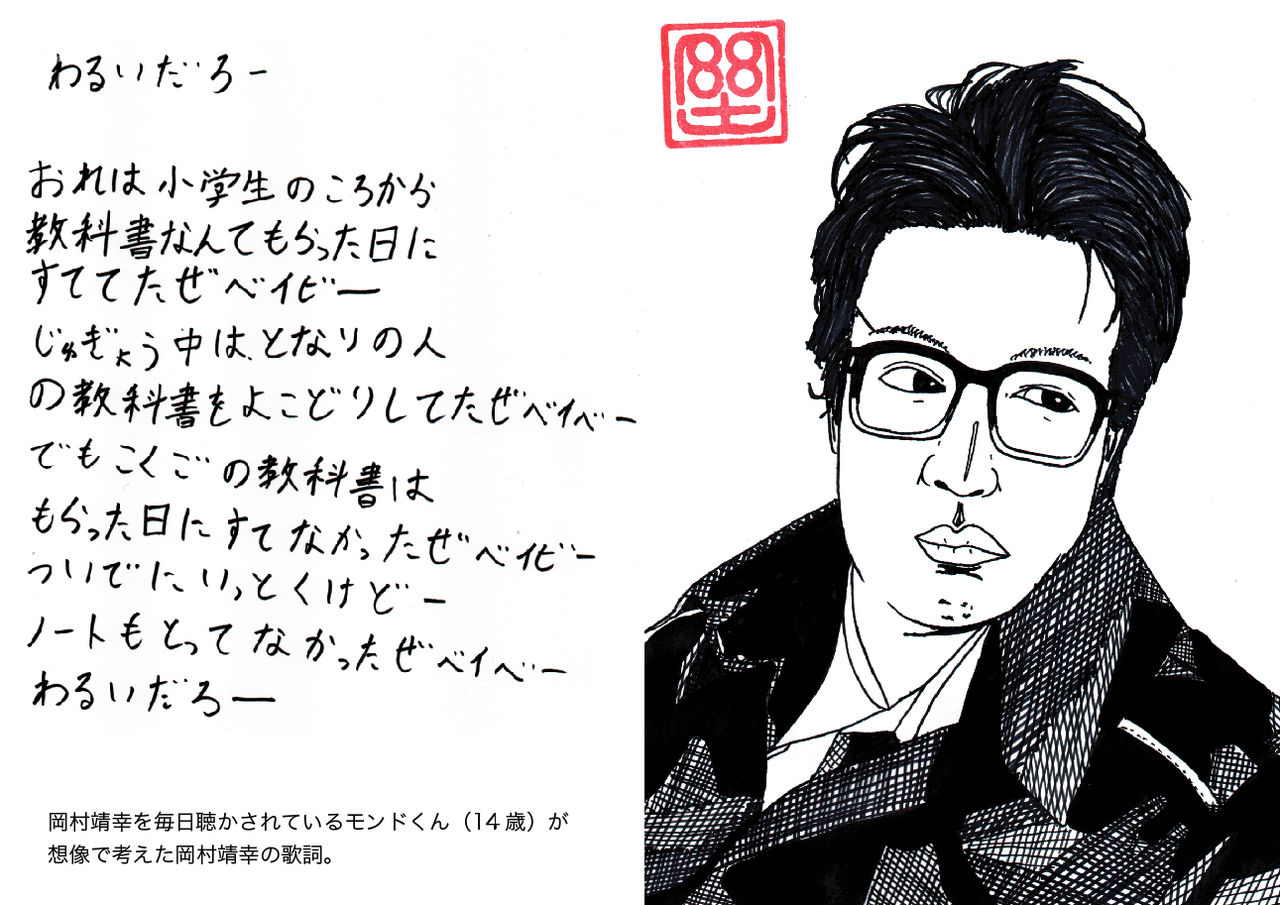 わるいだろー
おれは小学生のころから
教科書なんてもらった日に
すててたぜベイビー
じゅぎょう中は、となりの人
の教科書をよこどりしてたぜベイベー
でもこくごの教科書は
もらった日にすてなかったぜベイビー
ついでにいっとくけどー
ノートもとってなかったぜベイベー
わるいだろー
岡村靖幸を毎日聴かされているモンドくん（14歳）が
想像で考えた岡村靖幸の歌詞。